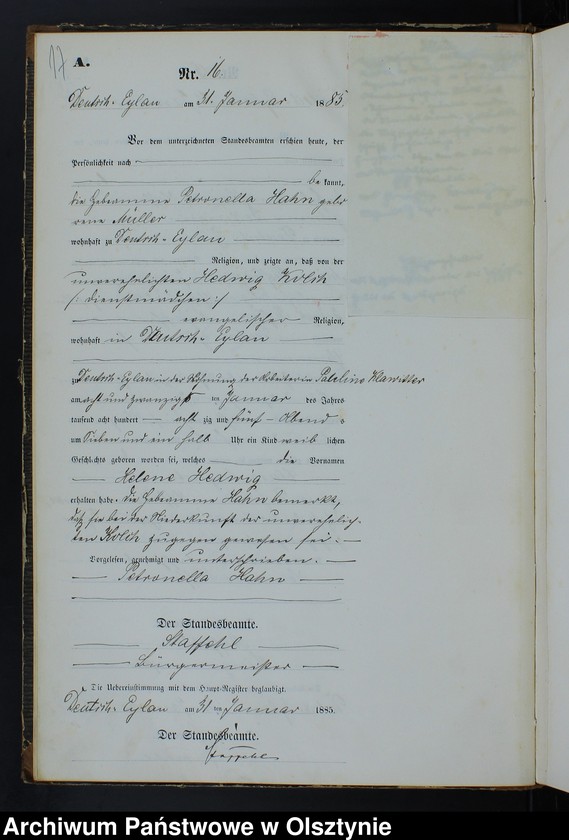 17
A.
Nr. 16.
Deutsch-Eylau am 31. Januar 1885.
Vor dem unterzeichneten Standesbeamten erschien heute, der
Persönlichkeit nach
bekannt,
die Hebeamme Petronella Hahn gebo
rene Müller
wohnhaft zu Deutsch-Eylau
Religion, und zeigte an, daß von der
unverehelichten Hedwig Kolih
/: Dienstmädchen :/
evangelischer Religion,
wohnhaft in Deutsch-Eylau
zu Deutsch-Eylau in der Wohnung der Arbeiterin Pauline Klawitter
am acht und zwanzigsten Januar des Jahres
tausend acht hundert acht zig und fünf Abends
um Sieben und ein halb Uhr ein Kind weib lichen
Geschlechts geboren worden sei, welches die Vornamen
Helene Hedwig
erhalten habe. Die Hebeamme Hahn bemerkt,
daß sie bei der Niederkunft der unverehelich-
ten Kolih zugegen gewesen sei.
Vorgelesen, genehmigt und unterschrieben.
Petronella Hahn
Der Standesbeamte.
Staffehl
Bürgermeister
Die Uebereinstimmung mit dem Haupt-Register beglaubigt.
Deutsch-Eylau am 31 ten Januar 1885.
Der Standesbeamte.
Staffehl
Archiwum Państwowe w Olsztynie